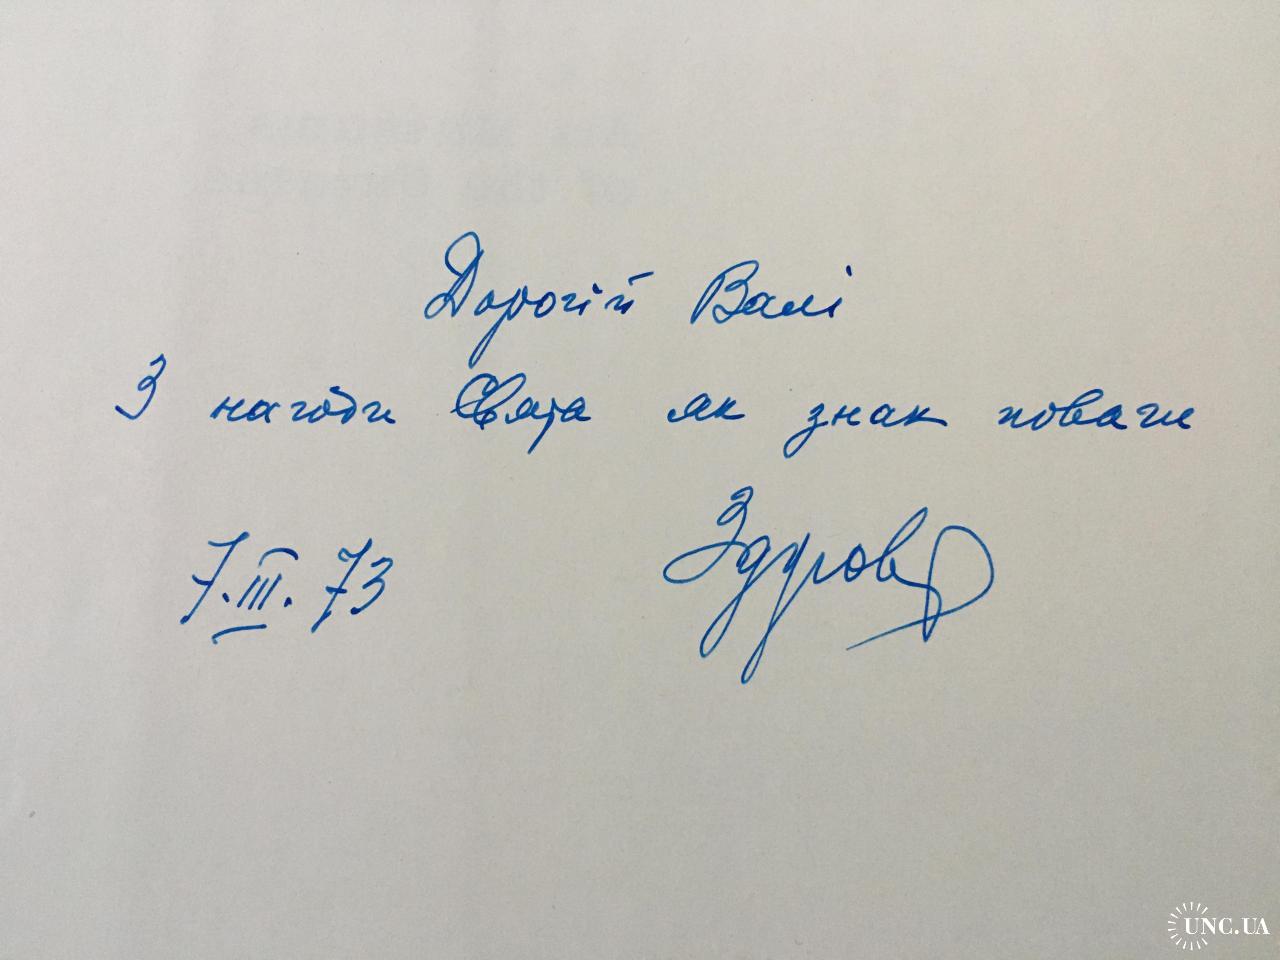 Дорогій Валі
З нагоди Свята як знак поваги
7.III.73
UNC.UA